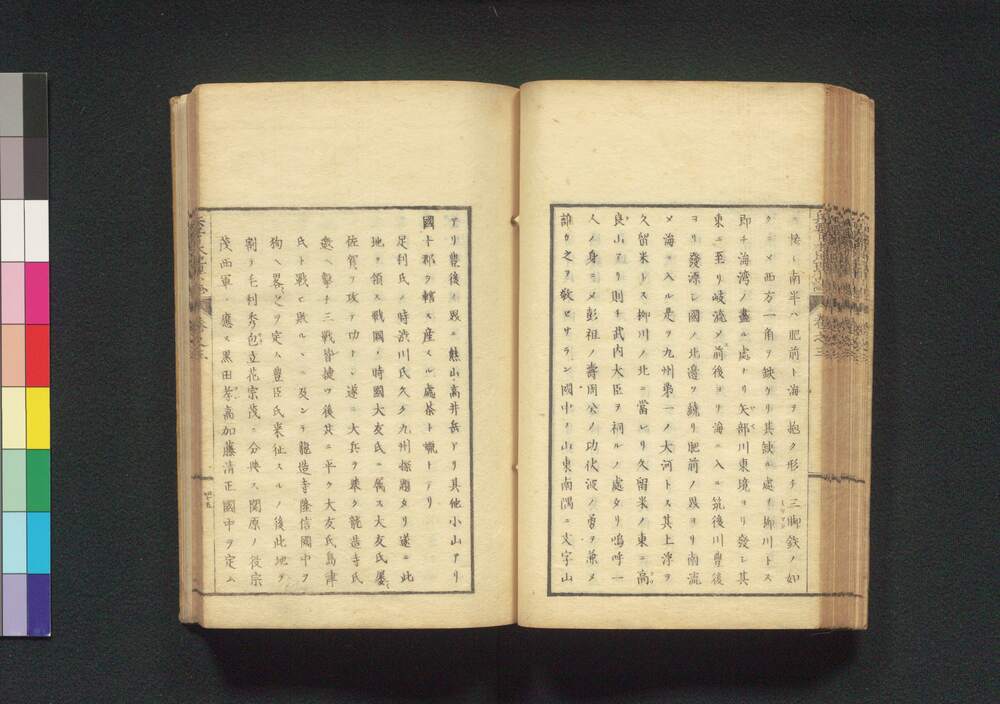 接シ南半ハ肥前ト海ヲ抱ク形チ三脚鉄ノ如
クニメ西方一角ヲ缺ケリ其缺ル処ヲ柳川トス
即チ海湾ノ盡ル処ナリ矢部川東境ヨリ發シ其
東ニ至リ岐流メ前後ヨリ海ニ入ル筑後川豊後
ヨリ發源シ國ノ北邊ヲ繞リ肥前ノ界ヨリ南流
メ海ニ入ル是ヲ九州第一ノ大河トス其上浮ヲ
久留米トス柳川ノ北ニ當レリ久留米ノ東ニ高
良山アリ則チ武内大臣ヲ祠ルノ處タリ嗚呼一
人ノ身ニメ彭祖ノ壽周公ノ功伏波ノ曽ヲ兼メ
誰カ之ヲ敬セサラン國中ノ山東南隅ニ文字山
アリ豊後ノ界ニ熊山高井岳アリ其他小山アリ
國十郡ヲ轄ス産スル處茶ト蝋トナリ
足利氏ノ時渋川氏久ク九州探題タリ遂ニ此
地ヲ領ス戦國ノ時國大友氏ニ属ス大友氏屡〻
佐賀ヲ攻テ功ナシ遂ニ大兵ヲ率ク龍造寺氏
邀ヘ擊チ三戦皆捷ツ後其ニ平ク大友氏島津
氏ト戦ヒ敗ルヽニ及ンテ龍造寺隆信國中ヲ
狥ヘ畧之ヲ定ム豊臣氏来征スルノ後此地ヲ
割テ毛利秀包立花宗茂ニ分與ス関原ノ役宗
茂西軍ニ應ス黒田孝高加藤清正國中ヲ定ム
四十五